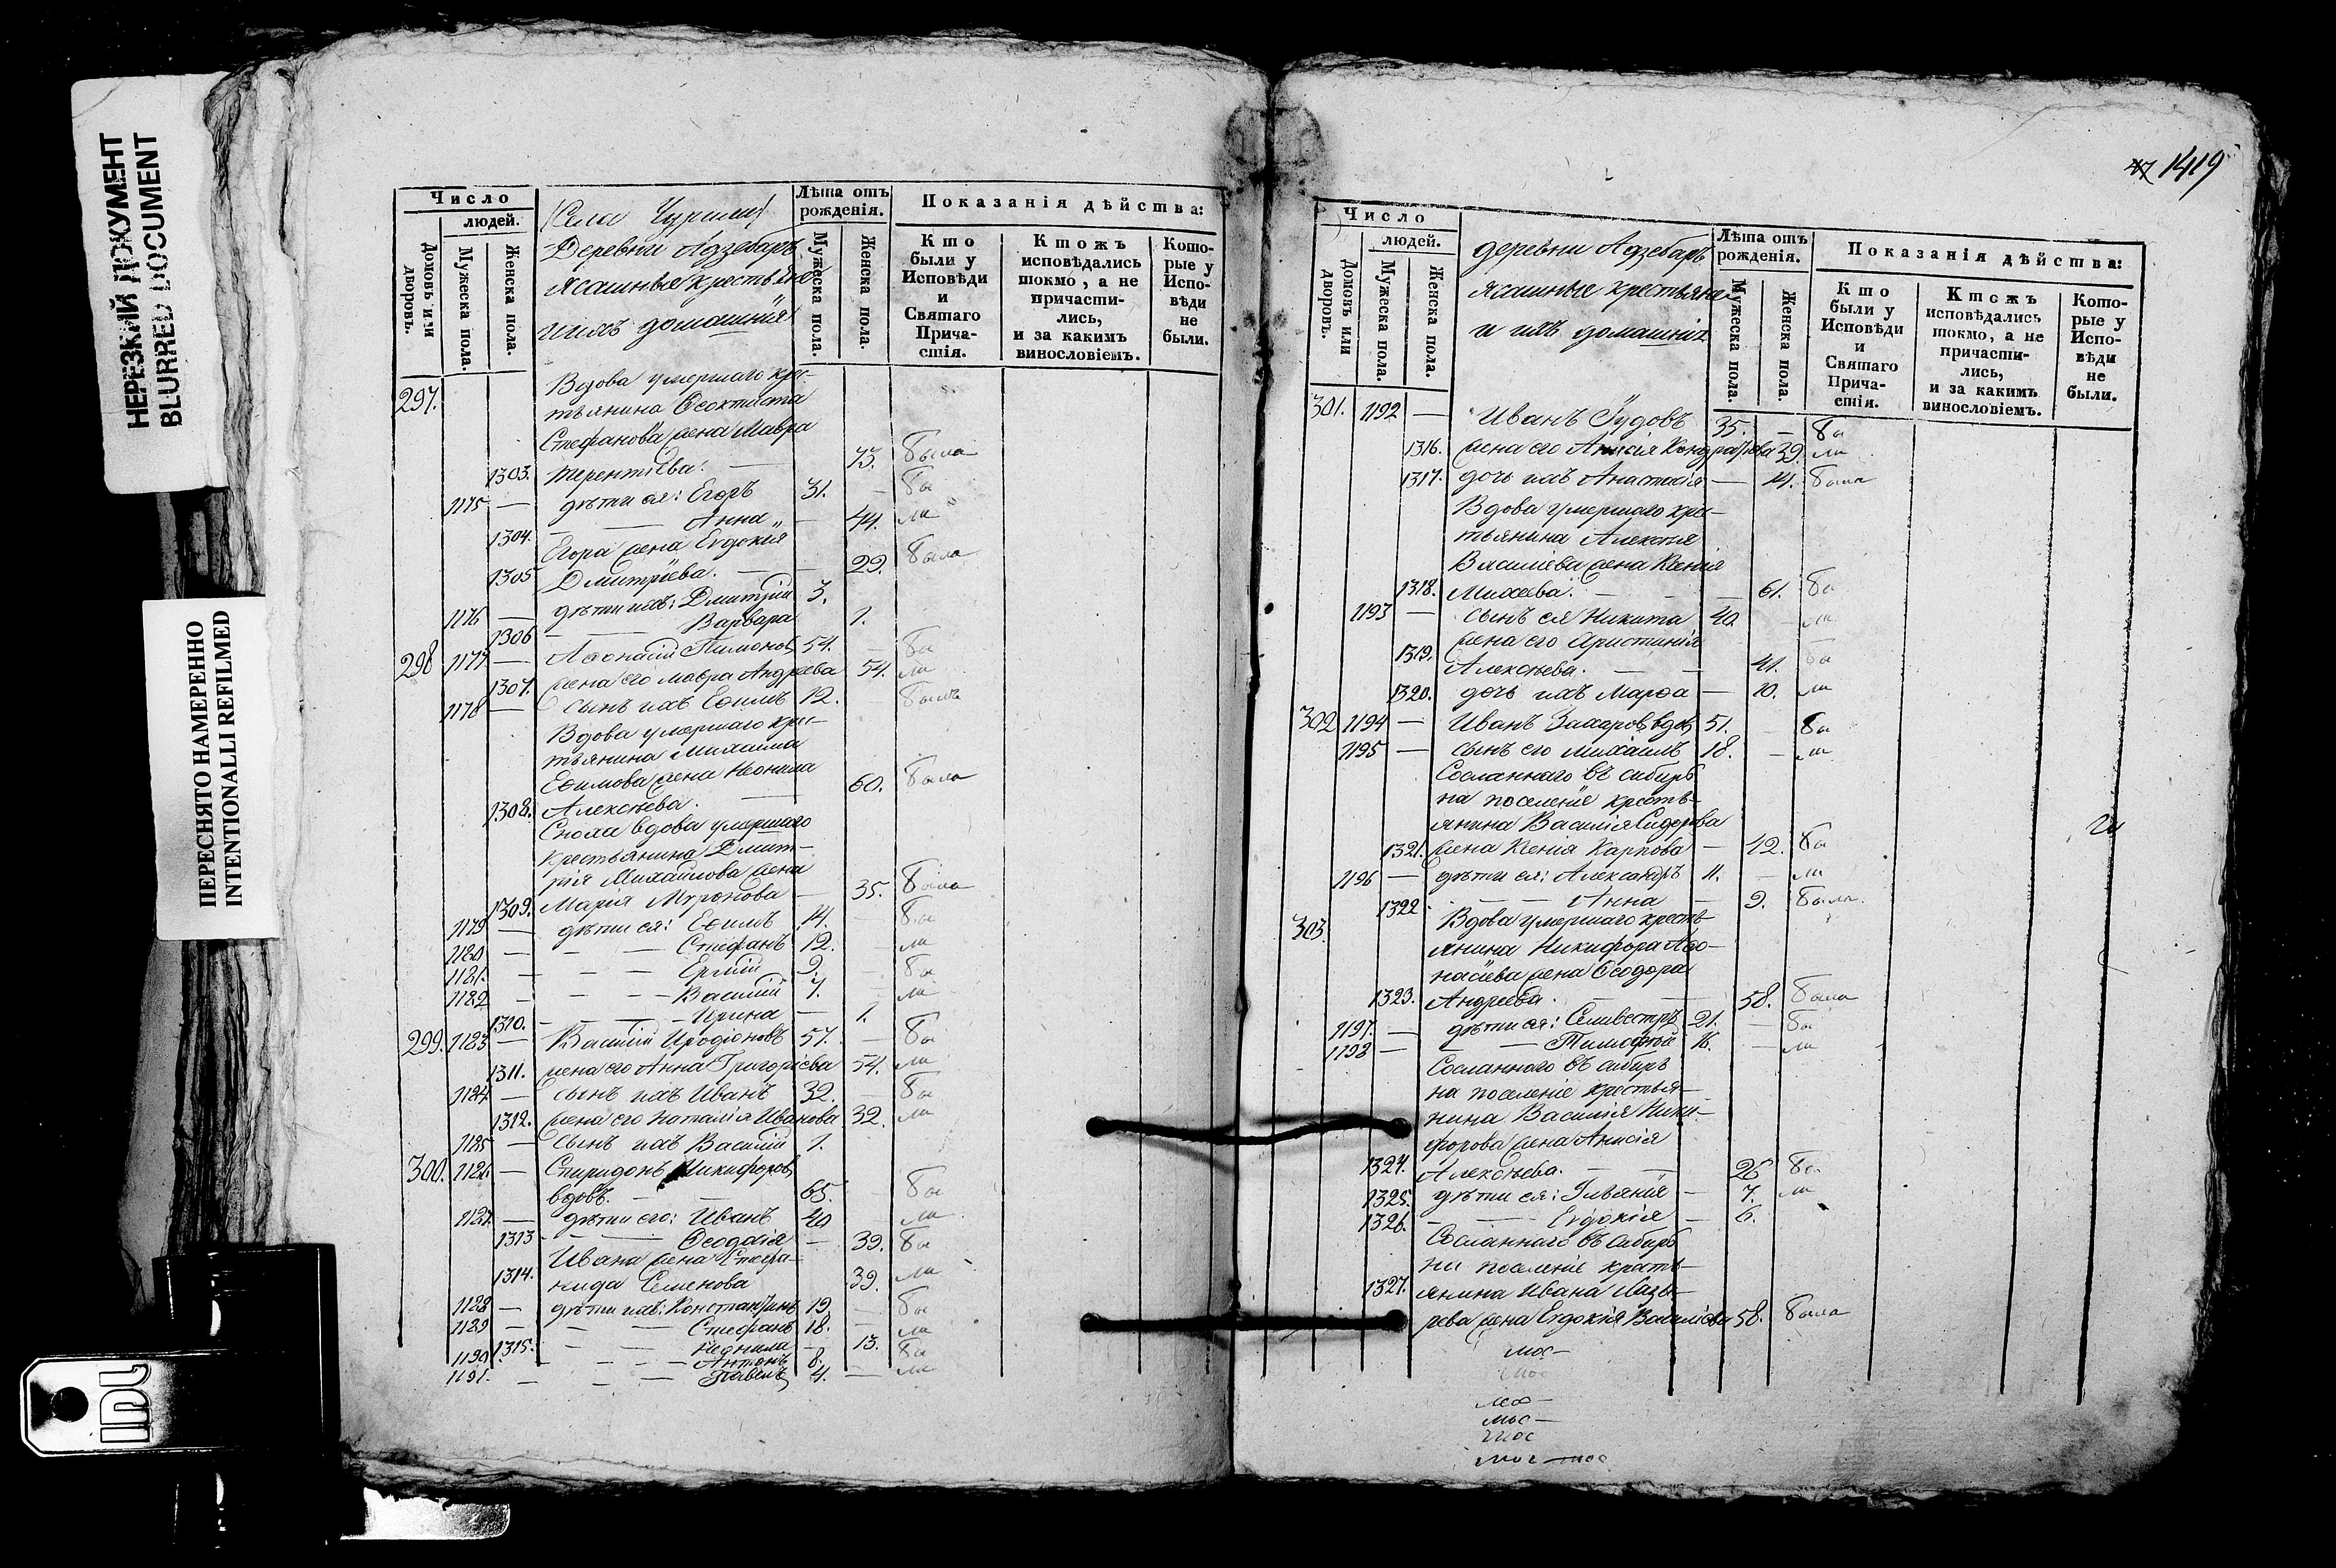 НЕРЕЗКИЙ ДОКУМЕНТ
BLURRED DOCUMENT
ПЕРЕСНЯТО НАМЕРЕННО
INTENTIONALLI REFILMED
Число
людей.
Домовъ или дворовъ.
Мужеска пола.
Женска пола.
(Села Чурили)
Деревни Адзебаръ
ясашные крестьяне
и ихъ домашнія
Лѣта отъ рожденія.
Мужеска пола.
Женска пола.
Показанія дѣйства:
Кто были у Исповѣди и Святаго Причастія.
Ктожъ исповѣдались токмо, а не причастились, и за какимъ винословіемъ.
Которые у Исповѣди не были.
297. Вдова умершаго кре-
тьянина Ѳеоктиста
Стефанова жена Мавра
1303. Терентіева. — 73. была
1175 — дѣти ея: Егоръ 31. — бы
1304. — Анна — 44. ли
Егора жена Евдокія
1305 Дмитріева. — 29. была
1176 — дѣти ихъ: Дмитрій 3.
1306 — Варвара 1.
298 1177 — Аѳонасій Пимоновъ 54. — бы
1307. жена его Мавра Андреева 54. ли
1178 — сынъ ихъ Еѳимъ 12. — былъ
Вдова умершаго кре-
тьянина Михаила
Еѳимова жена Неонила
1308. Алексѣева. — 60. была
Сноха вдова умершаго
крестьянина Дмит-
рія Михайлова жена
1309. Марія Миронова — 35. была
1179 — дѣти ея: Еѳимъ 14. — бы
1180 — — Стефанъ 12. — ли
1181. — — — Ермій 9. — бы
1182 — — — Василій 7. — ли
1310. — — — Ирина — 1.
299. 1183 — Василій Иродіоновъ 57. — бы
1311. жена его Анна Григорьева 54. ли
1184 — сынъ ихъ Иванъ 32. — бы
1312. жена его Наталія Иванова 32. ли
1185 — сынъ ихъ Василій 1.
300. 1186 — Спиридонъ Никифоровъ
вдовъ. — 65. — бы
1187. — дѣти его: Иванъ 40 — ли
1313 — — Ѳеодосія — 39. бы
Ивана жена Стефа-
1314. нида Семенова 39. ли
1188 — дѣти ихъ: Константинъ 19. — бы
1189 — — Стефанъ 18. — ли
1315. — — Неонила — 13. бы
1190 — — — Антонъ 8.
1191. — — — Павелъ 4. — ли
1419
Число
людей.
Домовъ или дворовъ.
Мужеска пола.
Женска пола.
деревни Адзебаръ
ясашные крестьяне
и ихъ домашнія
Лѣта отъ рожденія.
Мужеска пола.
Женска пола.
Показанія дѣйства:
Кто были у Исповѣди и Святаго Причастія.
Ктожъ исповѣдались токмо, а не причастились, и за какимъ винословіемъ.
Которые у Исповѣди не были.
301. 1192 — Иванъ Іудовъ 35. — бы
1316. жена его Анисія Кондратьева 39 ли
1317. дочь ихъ Анастасія — 14. была
Вдова умершаго кре-
тьянина Алексѣя
Василіева жена Ксенія
1318. Михеева. — 61. бы
1193 — сынъ ея Никита 40 — ли
жена его Христинія
1319. Алексѣева. — 41. бы
1320. дочь ихъ Марѳа — 10. ли
302 1194 — Иванъ Захаровъ вдовъ 51. — бы
1195 — сынъ его Михаилъ 18. — ли
Сосланнаго въ сибирь
на поселеніе кресть-
янина Василія Сидорова
1321. жена Ксенія Карпова — 42. бы
1196 — дѣти ея: Александръ 11. — ли
1322 — — Анна — 9. была.
303. Вдова умершаго кресть-
янина Никифора Аѳо-
насіева жена Ѳеодора
1323. Андреева. — 58. была
1197. — дѣти ея: Селивестръ 21. — бы
1198 — — Тимоѳей 16. — ли
Сосланнаго въ сибирь
на поселеніе крестья-
нина Василія Ники-
форова жена Анисія
1324. Алексѣева. — 26 бы
1325. дѣти ея: Гликерія — 7. ли
1326. — — Евдокія — 6.
Сосланнаго въ сибирь
на поселеніе кресть-
1327. янина Ивана Лаза-
рева жена Евдокія Василіева 58. была